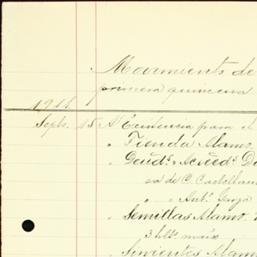 Movimiento de
primera quincena
1911
Septe. 15 A Existencia para el
" Tienda Alamo.
" Deuds. y Acreeds. D
" " Antº. Garza
" Semillas Alamo.
3 hlts. maiz
" Sirvientes Alamo